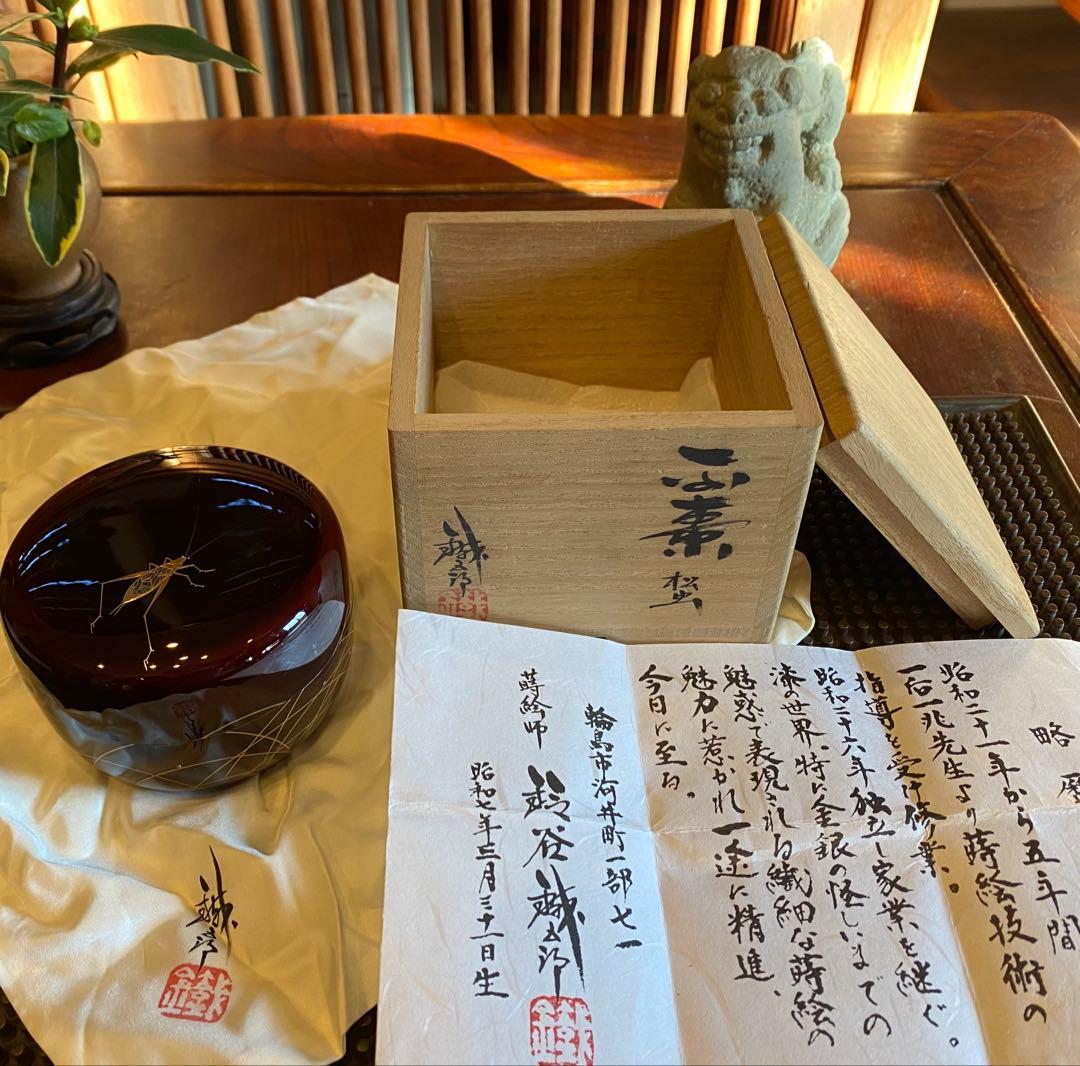 平棗
松虫
鐵五郎
略歴
昭和二十一年から五年間
一后一兆先生より蒔絵技術の
指導を受け修業。
昭和二十六年独立し家業を継ぐ。
漆の世界、特に金銀の怪しいまでの
魅惑で表現される繊細な蒔絵の
魅力に惹かれ一途に精進、
今日に至る。
輪島市河井町一部七一
蒔絵師 鈴谷鐵五郎
昭和七年三月三十一日生
鐵五郎